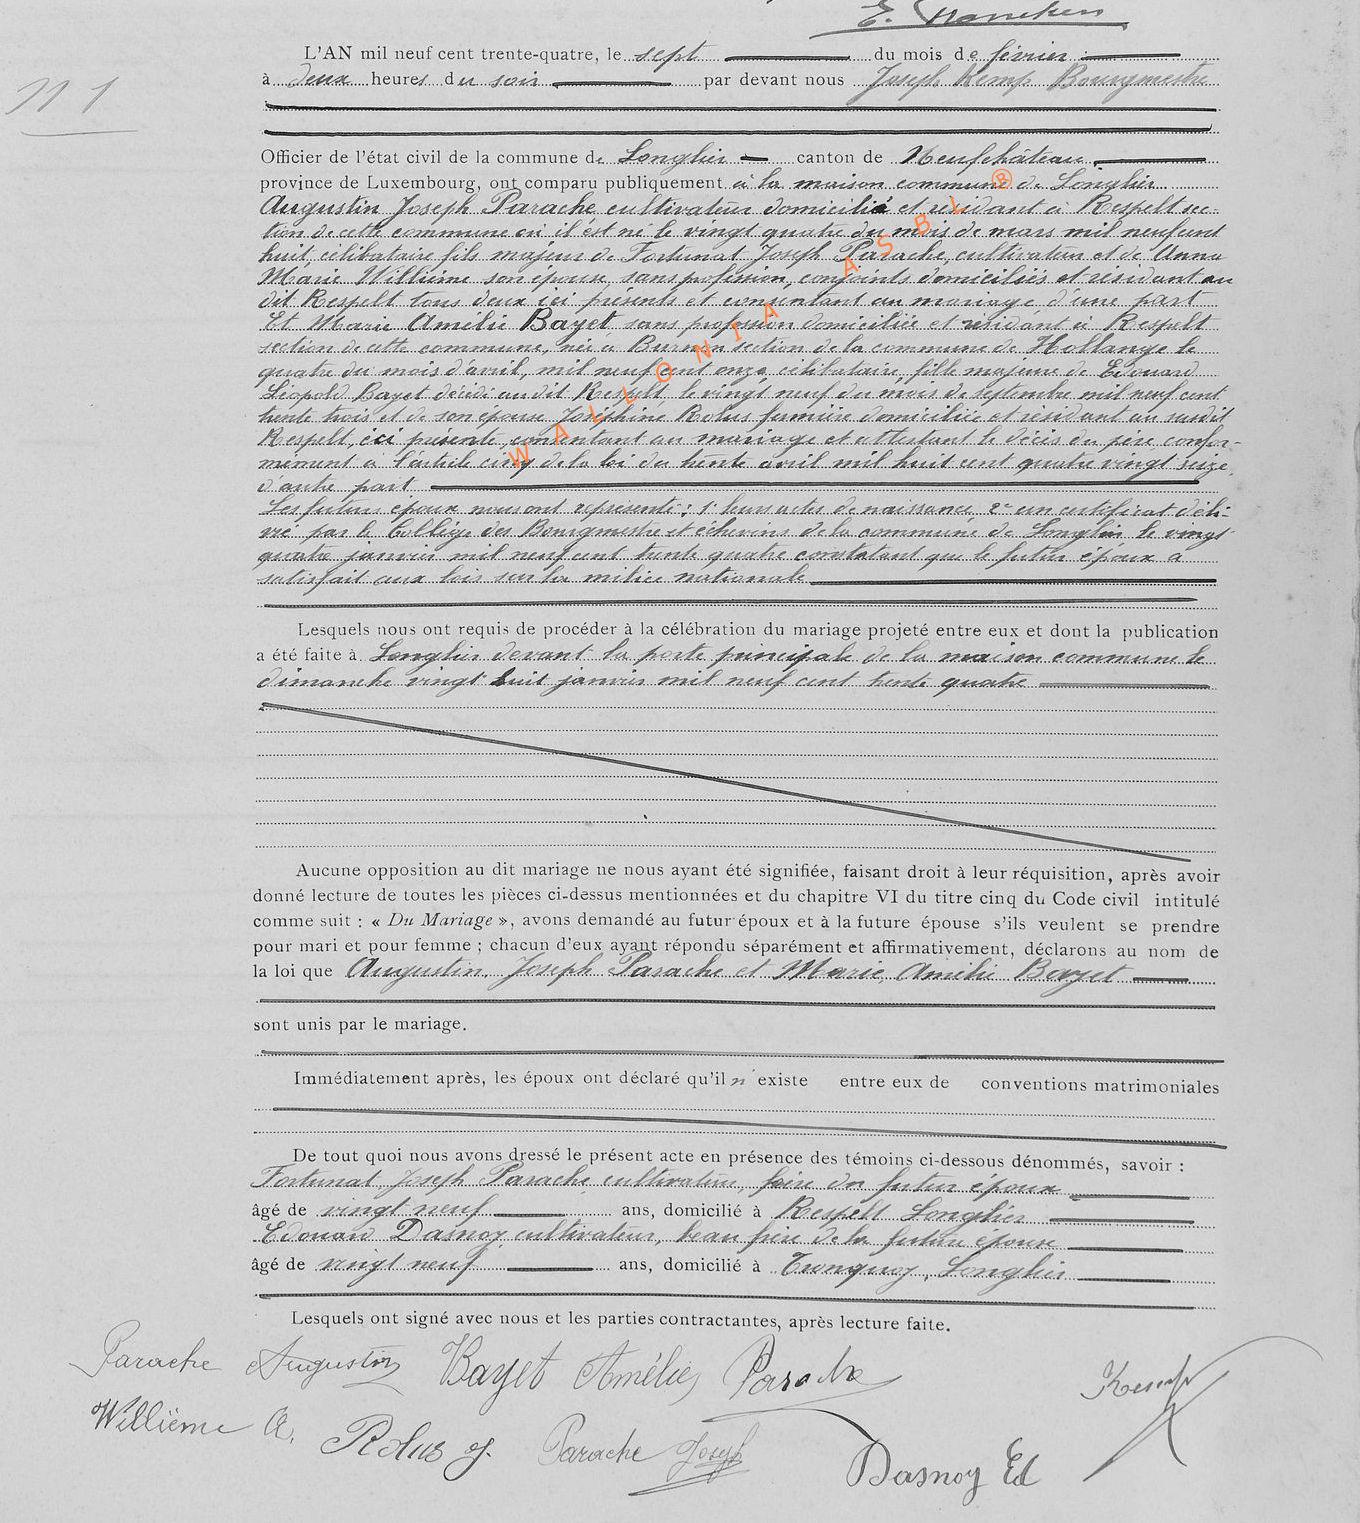 L'AN mil neuf cent trente-quatre, le sept du mois de février
à deux heures du soir par devant nous Joseph Kemp Bourgmestre
N 1
Officier de l'état civil de la commune de Longlier canton de Neufchâteau
province de Luxembourg, ont comparu publiquement à la maison commune de Longlier
Augustin Joseph Parache cultivateur domicilié et résidant à Respelt sec-
tion de cette commune où il est né le vingt quatre du mois de mars mil neuf cent
huit, célibataire fils majeur de Fortunat Joseph Parache, cultivateur et de Anna
Marie Willième son épouse, sans profession, conjoints domiciliés et résidant au
dit Respelt tous deux ici présents et consentant au mariage d'une part
Et Marie Amélie Bayet sans profession domiciliée et résidant à Respelt
section de cette commune, née à Burnon section de la commune de Hollange le
quatre du mois d'avril, mil neuf cent onze, célibataire, fille majeure de Edouard
Léopold Bayet décédé au dit Respelt, le vingt neuf du mois de septembre mil neuf cent
trente trois et de son épouse Joséphine Rolus fermière domiciliée et résidant au susdit
Respelt, ici présente, consentant au mariage et attestant le décès du père confor-
mément à l'article cinq de la loi du trente avril mil huit cent quatre vingt seize
d'autre part
Les futurs époux nous ont représenté : 1° leurs actes de naissance, 2° un certificat déli-
vré par le Collège des Bourgmestre et échevins de la commune de Longlier le vingt
quatre janvier mil neuf cent trente quatre constatant que le futur époux a
satisfait aux lois sur la milice nationale
Lesquels nous ont requis de procéder à la célébration du mariage projeté entre eux et dont la publication
a été faite à Longlier devant la porte principale de la maison commune le
dimanche vingt huit janvier mil neuf cent trente quatre
Aucune opposition au dit mariage ne nous ayant été signifiée, faisant droit à leur réquisition, après avoir
donné lecture de toutes les pièces ci-dessus mentionnées et du chapitre VI du titre cinq du Code civil intitulé
comme suit : « Du Mariage », avons demandé au futur époux et à la future épouse s'ils veulent se prendre
pour mari et pour femme ; chacun d'eux ayant répondu séparément et affirmativement, déclarons au nom de
la loi que Augustin Joseph Parache et Marie Amélie Bayet
sont unis par le mariage.
Immédiatement après, les époux ont déclaré qu'il n'existe entre eux de conventions matrimoniales
De tout quoi nous avons dressé le présent acte en présence des témoins ci-dessous dénommés, savoir :
Fortunat Joseph Parache cultivateur, frère du futur époux
âgé de vingt neuf ans, domicilié à Respelt Longlier
Edouard Dasnoy cultivateur, beau frère de la future épouse
âgé de vingt neuf ans, domicilié à Tronquoy, Longlier
Lesquels ont signé avec nous et les parties contractantes, après lecture faite.
Parache Augustin Bayet Amélie Parache Kemp
Willième A. Rolus J. Parache Joseph Dasnoy Ed
WALLONIA ASBL ®